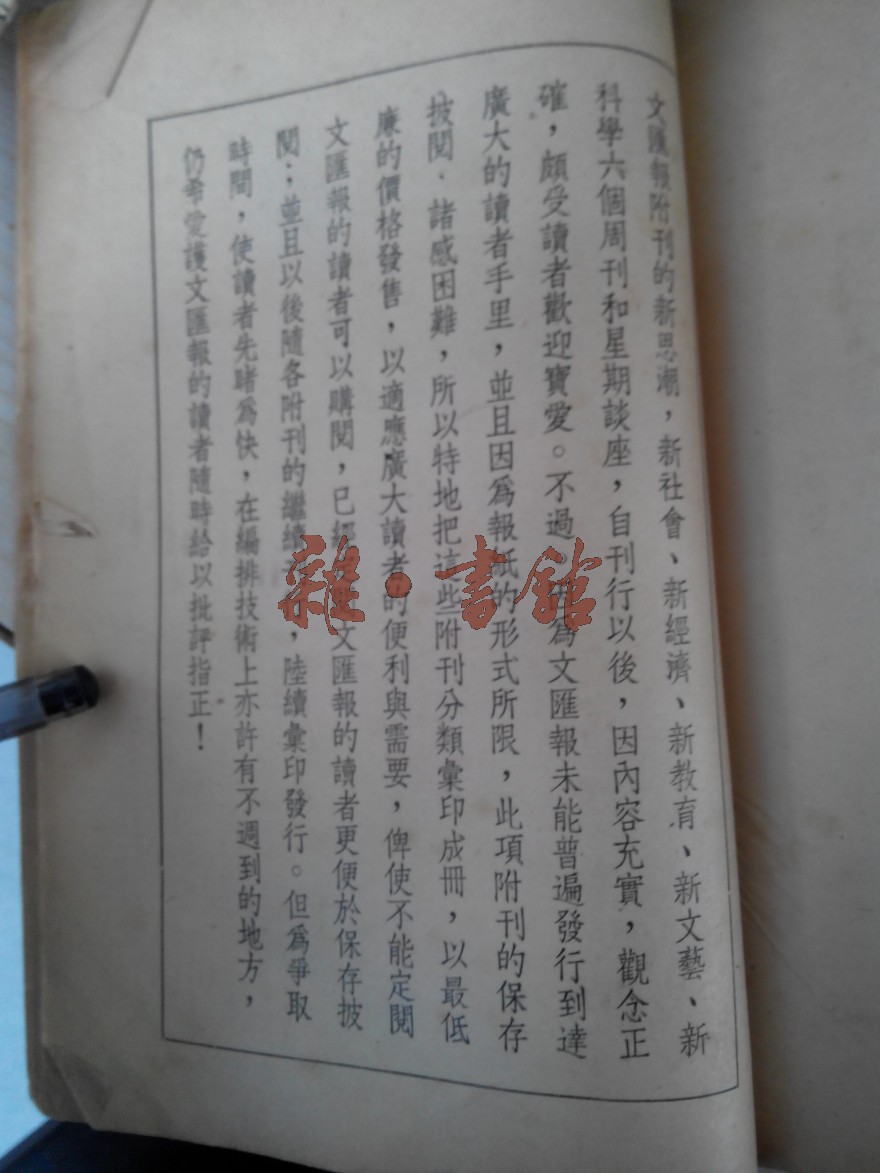 文匯報附刊的新思潮，新社會、新經濟、新教育、新文藝、新
科學六個周刊和星期談座，自刊行以後，因內容充實，觀念正
確，頗受讀者歡迎寶愛。不過，因爲文匯報未能普遍發行到達
廣大的讀者手里，並且因爲報紙的形式所限，此項附刊的保存
披閱．諸感困難，所以特地把這些附刊分類彙印成冊，以最低
廉的價格發售，以適應廣大讀者的便利與需要，俾使不能定閱
文匯報的讀者可以購閱，已經文匯報的讀者更便於保存披
閱；並且以後隨各附刊的繼續，陸續彙印發行。但爲爭取
時間，使讀者先睹爲快，在編排技術上亦許有不週到的地方，
仍希愛護文匯報的讀者隨時給以批評指正！
雜·書館